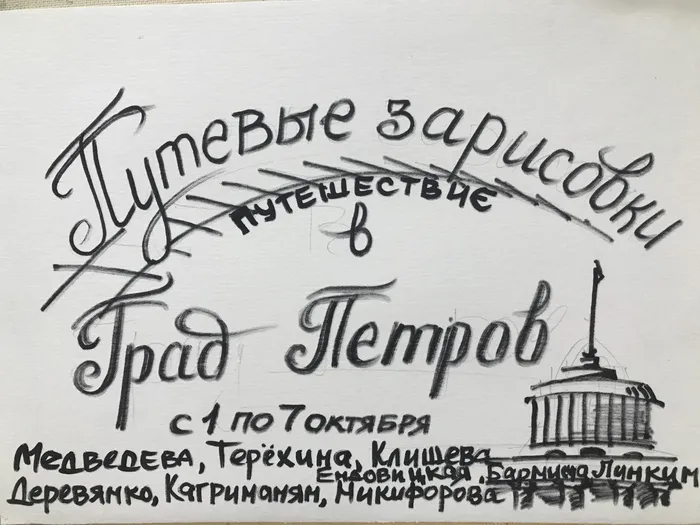 Путевые зарисовки
ПУТЕШЕСТВИЕ
в
Град Петров
с 1 по 7 октября
Медведева, Терёхина, Клишева
Ендовицкая, Бармина Линким
Деревянко, Кагриманян, Никифорова